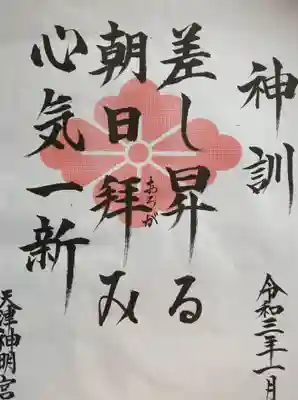 神訓
差し昇る
朝日拝み
おろが
心気一新
令和三年一月
天津神明宮